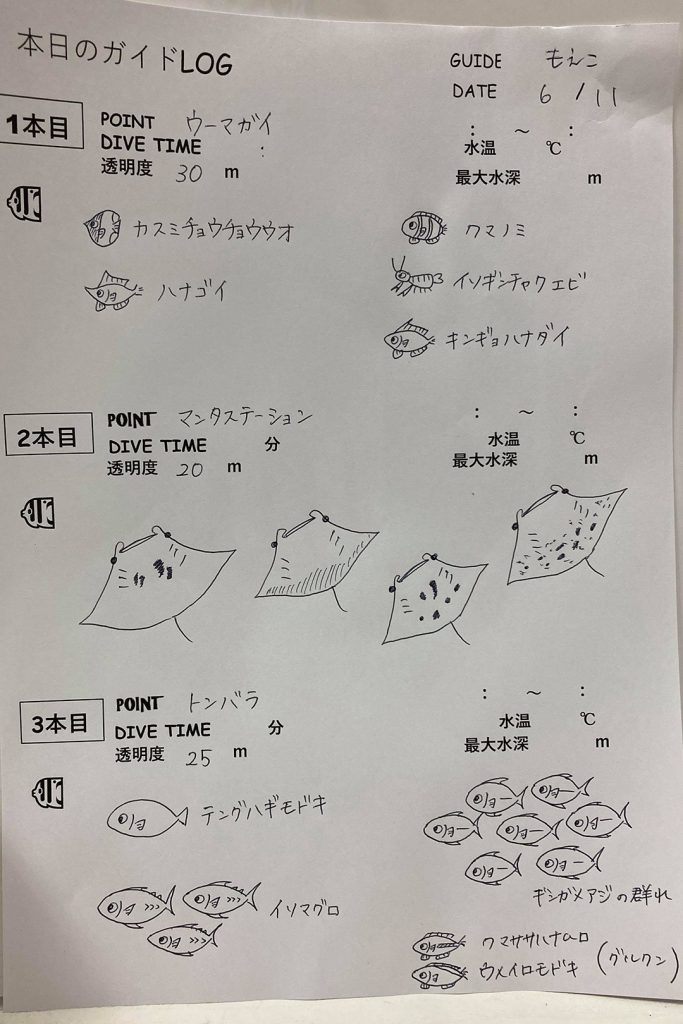 本日のガイドLOG
GUIDE もえこ
DATE 6 / 11
1本目
POINT ウーマガイ
DIVE TIME :
透明度 30 m
: ～ :
水温 ℃
最大水深 m
カスミチョウチョウウオ
クマノミ
ハナゴイ
イソギンチャクエビ
キンギョハナダイ
2本目
POINT マンタステーション
DIVE TIME 分
透明度 20 m
: ～ :
水温 ℃
最大水深 m
3本目
POINT トンバラ
DIVE TIME 分
透明度 25 m
: ～ :
水温 ℃
最大水深 m
テングハギモドキ
ギンガメアジの群れ
イソマグロ
クマササハナムロ
ウメイロモドキ
(グルクン)